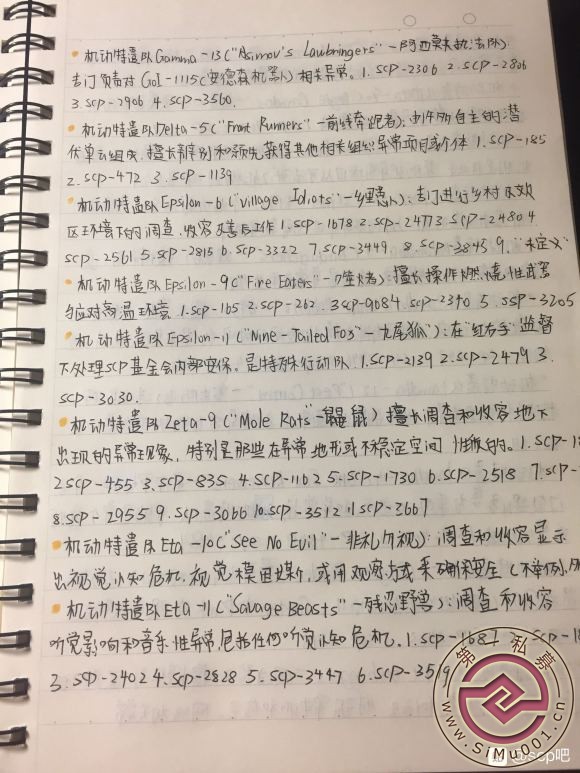 机动特遣队Gamma-13("Asimov's Lawbringers"-阿西莫夫执法队):
专门负责对GoI-1115(安德森机器人)相关异常。1.SCP-2306 2.SCP-2806
3.SCP-2906 4.SCP-3560.
机动特遣队Delta-5("Front Runners"-前线奔跑者):由 自主的潜
伏单 组成,擅长 别和 先获得其他相关组织异常项目或个体 1.SCP-185
2.SCP-472 3.SCP-1139
机动特遣队Epsilon-6("Village Idiots"-乡 愚人):专门进行乡村及效
区环境下的调查,收容及善后工作 1.SCP-1678 2.SCP-2477 3.SCP-2480 4
SCP-2561 5.SCP-2815 6.SCP-3322 7.SCP-3449 8.SCP-3843 9. 未定义
机动特遣队Epsilon-9("Fire Eaters"-噬火者):擅长操作燃烧性武器
与应对高温环境 1.SCP-165 2.SCP-262. 3SCP-908 4.SCP-2340 5.SSP-3205
机动特遣队Epsilon-11("Nine-Tailed Fox"-九尾狐"):在"红右手"监督
下处理SCP基金会内部安保。是特殊行动队.1.SCP-2139 2.SCP-2479 3.
SCP-3030.
机动特遣队Zeta-9("Mole Rats"-鼹鼠)擅长调查和收容地下
出现的异常现象,特别是那些在异常地形或不稳定空间 性质的。1.SCP-1
2SCP-455 3.SCP-835 4.SCP-1162 5.SCP-1730 6.SCP-2518 7.SCP-
8.SCP-2955 9.SCP-3066 10.SCP-3512 11.SCP-3667
机动特遣队Eta-10("See No Evil"-非礼勿视):调查和收容显示
出视觉认知危机,视觉模因媒介,或用观察方式 (不举例,
机动特遣队Eta-11("Savage Beasts"-残忍野兽):调查和收容
听觉影响和音乐性异常,包括任何听觉认知危机。1.SCP-1687
3.SCP-2402 4.SCP-2828 5.SCP-3447 6.SCP-3519
第一私募
www.SiMu001.cn
@scp吧